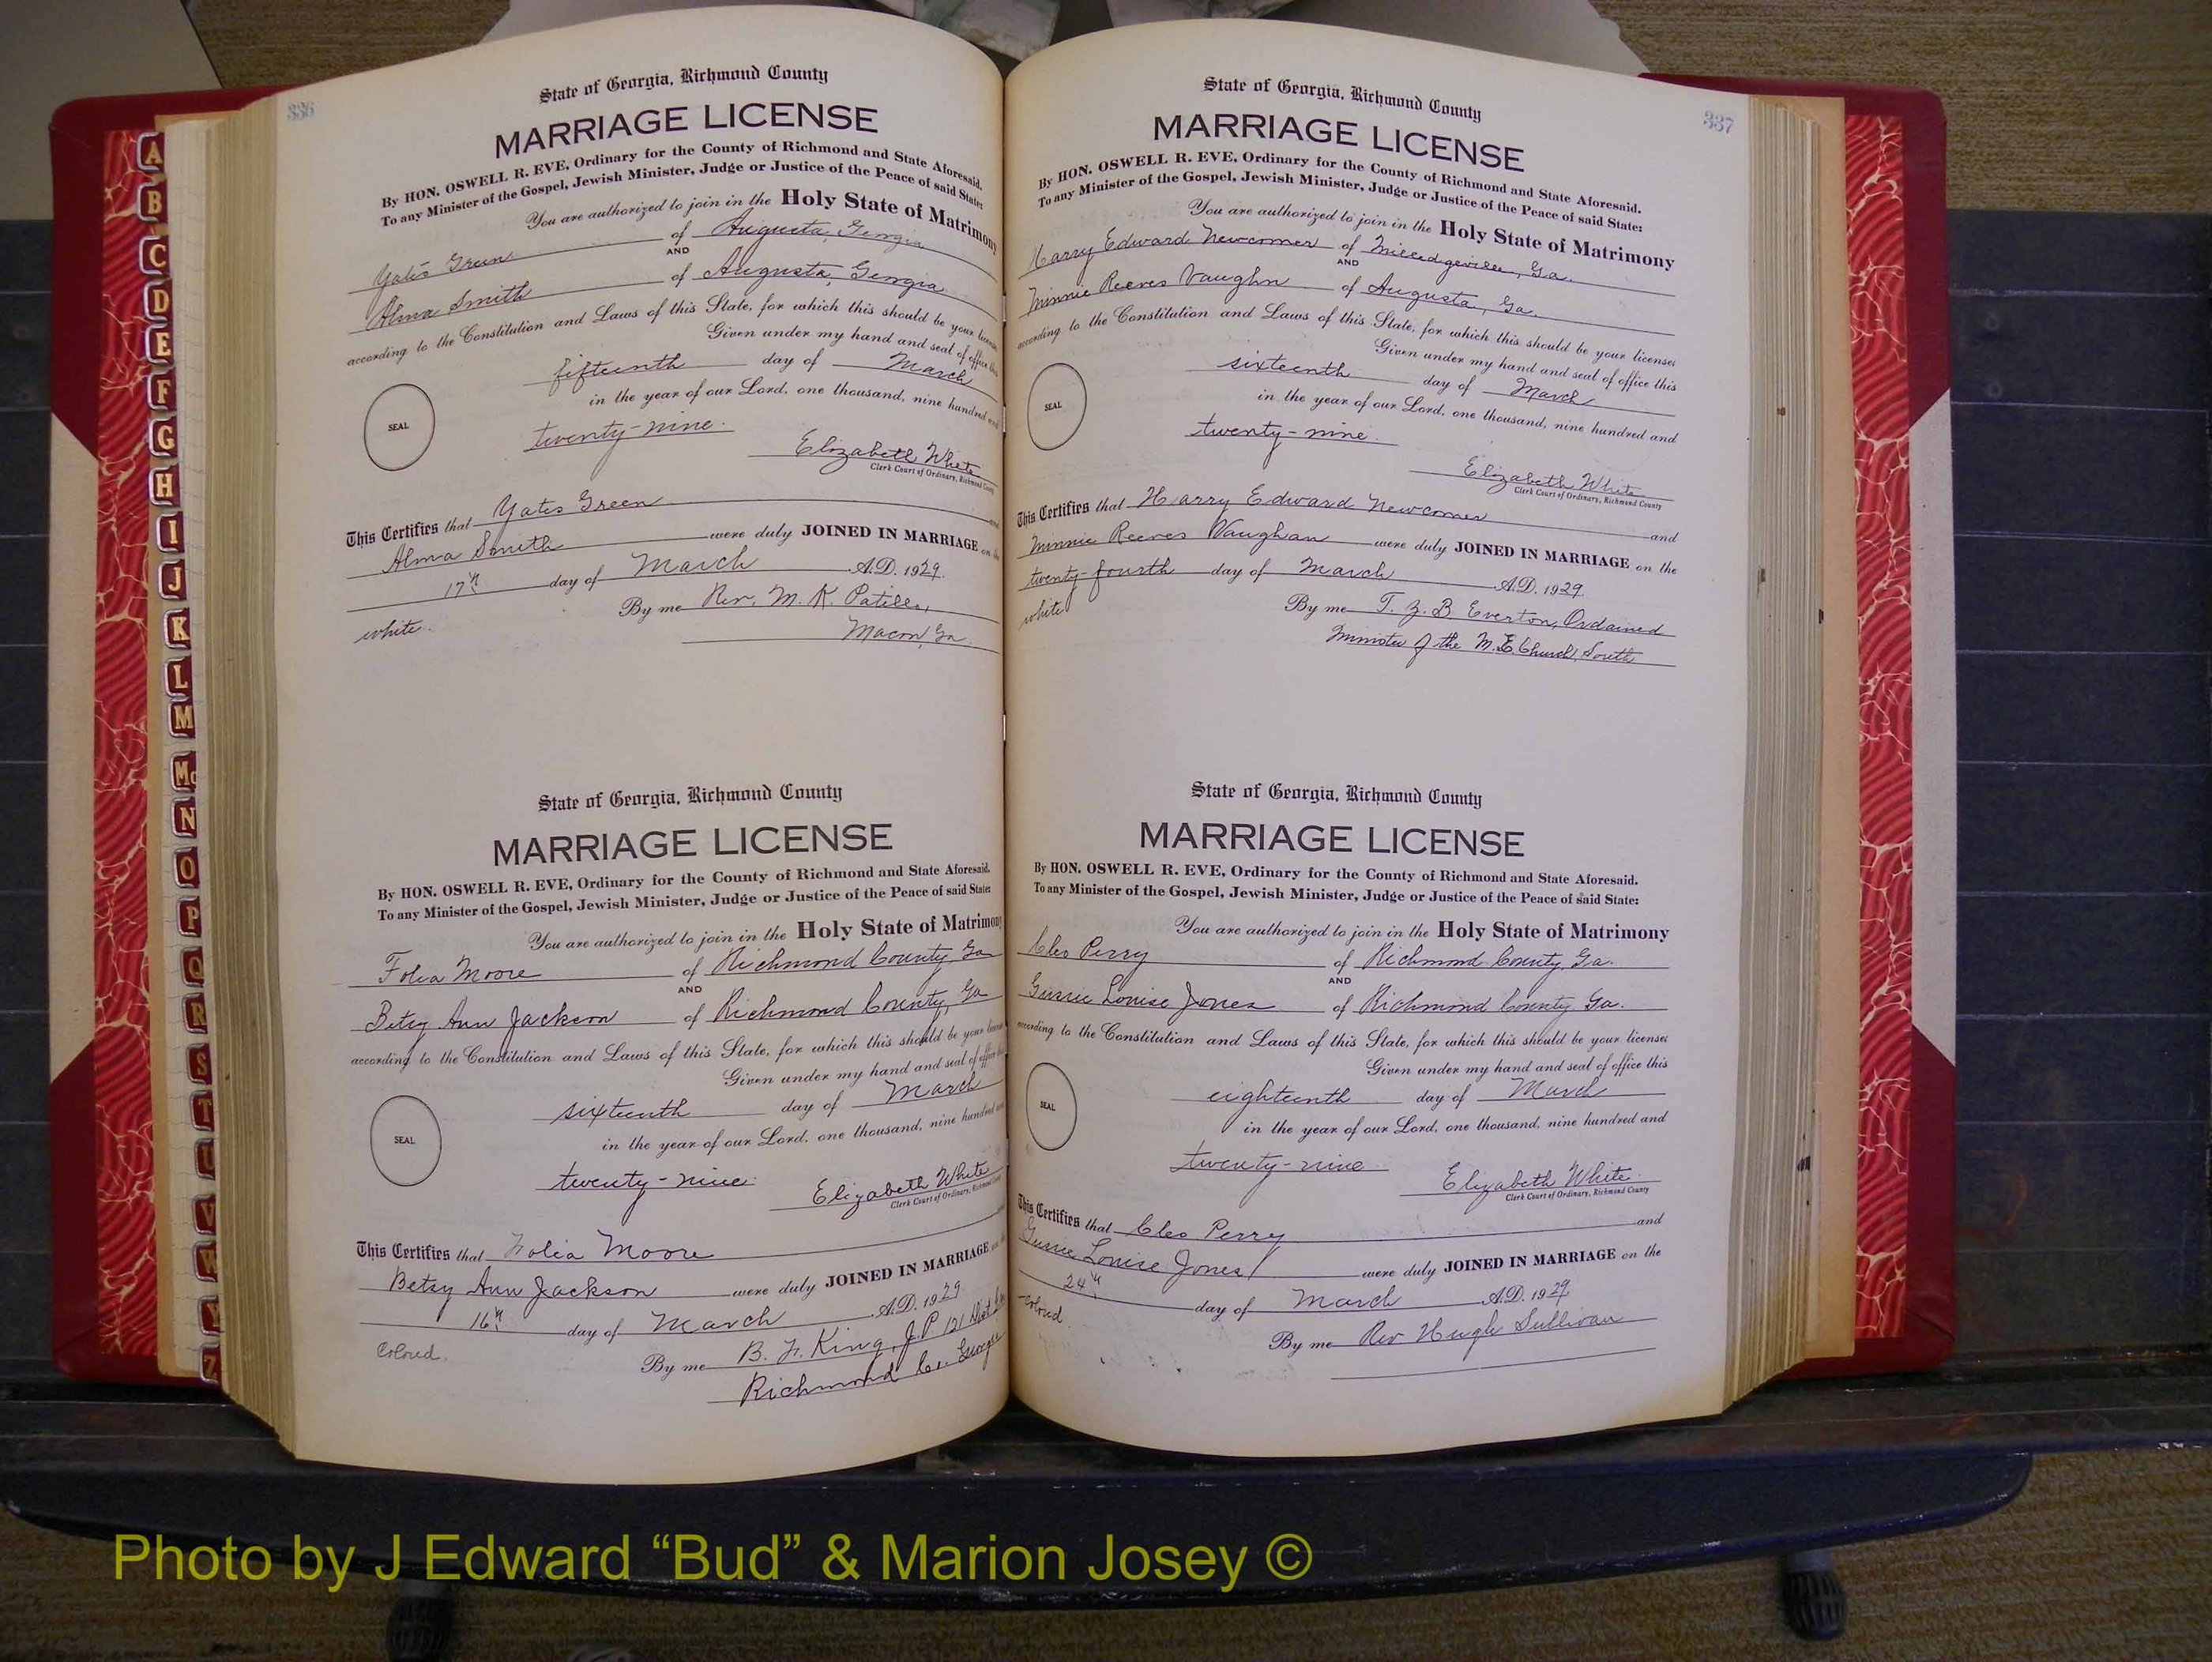 336
State of Georgia, Richmond County
MARRIAGE LICENSE
By HON. OSWELL R. EVE, Ordinary for the County of Richmond and State Aforesaid.
To any Minister of the Gospel, Jewish Minister, Judge or Justice of the Peace of said State:
You are authorized to join in the Holy State of Matrimony
Yates Green of Augusta, Georgia
AND
Alma Smith of Augusta, Georgia
according to the Constitution and Laws of this State, for which this should be your license
Given under my hand and seal of office this
fifteenth day of March
in the year of our Lord, one thousand, nine hundred and
SEAL
twenty-nine.
Elizabeth White
Clerk Court of Ordinary, Richmond County
This Certifies that Yates Green and
Alma Smith were duly JOINED IN MARRIAGE on the
17th day of March A.D. 1929.
By me Rev. M. K. Patillo,
white. Macon, Ga.
State of Georgia, Richmond County
MARRIAGE LICENSE
By HON. OSWELL R. EVE, Ordinary for the County of Richmond and State Aforesaid.
To any Minister of the Gospel, Jewish Minister, Judge or Justice of the Peace of said State:
You are authorized to join in the Holy State of Matrimony
Folia Moore of Richmond County, Ga
AND
Betsy Ann Jackson of Richmond County, Ga
according to the Constitution and Laws of this State, for which this should be your license
Given under my hand and seal of office this
sixteenth day of March
in the year of our Lord, one thousand, nine hundred and
SEAL
twenty-nine.
Elizabeth White
Clerk Court of Ordinary, Richmond County
This Certifies that Folia Moore
Betsy Ann Jackson were duly JOINED IN MARRIAGE on the
16th day of March A.D. 1929
Colored. By me B. F. King, J.P. 121 Dist
Richmond Co. Georgia
337
State of Georgia, Richmond County
MARRIAGE LICENSE
By HON. OSWELL R. EVE, Ordinary for the County of Richmond and State Aforesaid.
To any Minister of the Gospel, Jewish Minister, Judge or Justice of the Peace of said State:
You are authorized to join in the Holy State of Matrimony
Harry Edward Newcomer of Milledgeville, Ga.
AND
Minnie Reeves Vaughn of Augusta, Ga.
according to the Constitution and Laws of this State, for which this should be your license:
Given under my hand and seal of office this
sixteenth day of March
in the year of our Lord, one thousand, nine hundred and
SEAL
twenty-nine.
Elizabeth White
Clerk Court of Ordinary, Richmond County
This Certifies that Harry Edward Newcomer and
Minnie Reeves Vaughan were duly JOINED IN MARRIAGE on the
twenty-fourth day of March A.D. 1929.
white By me T. Z. B. Everton, Ordained
Minister of the M.E. Church, South
State of Georgia, Richmond County
MARRIAGE LICENSE
By HON. OSWELL R. EVE, Ordinary for the County of Richmond and State Aforesaid.
To any Minister of the Gospel, Jewish Minister, Judge or Justice of the Peace of said State:
You are authorized to join in the Holy State of Matrimony
Cleo Perry of Richmond County, Ga.
AND
Gussie Louise Jones of Richmond County, Ga.
according to the Constitution and Laws of this State, for which this should be your license:
Given under my hand and seal of office this
eighteenth day of March
in the year of our Lord, one thousand, nine hundred and
SEAL
twenty-nine
Elizabeth White
Clerk Court of Ordinary, Richmond County
This Certifies that Cleo Perry and
Gussie Louise Jones were duly JOINED IN MARRIAGE on the
24th day of March A.D. 1929
Colored. By me Rev Hugh Sullivan
A
B
C
D
E
F
G
H
I
J
K
L
M
Mc
N
O
P
Q
R
S
T
U
V
W
Y
Z
Photo by J Edward “Bud” & Marion Josey ©